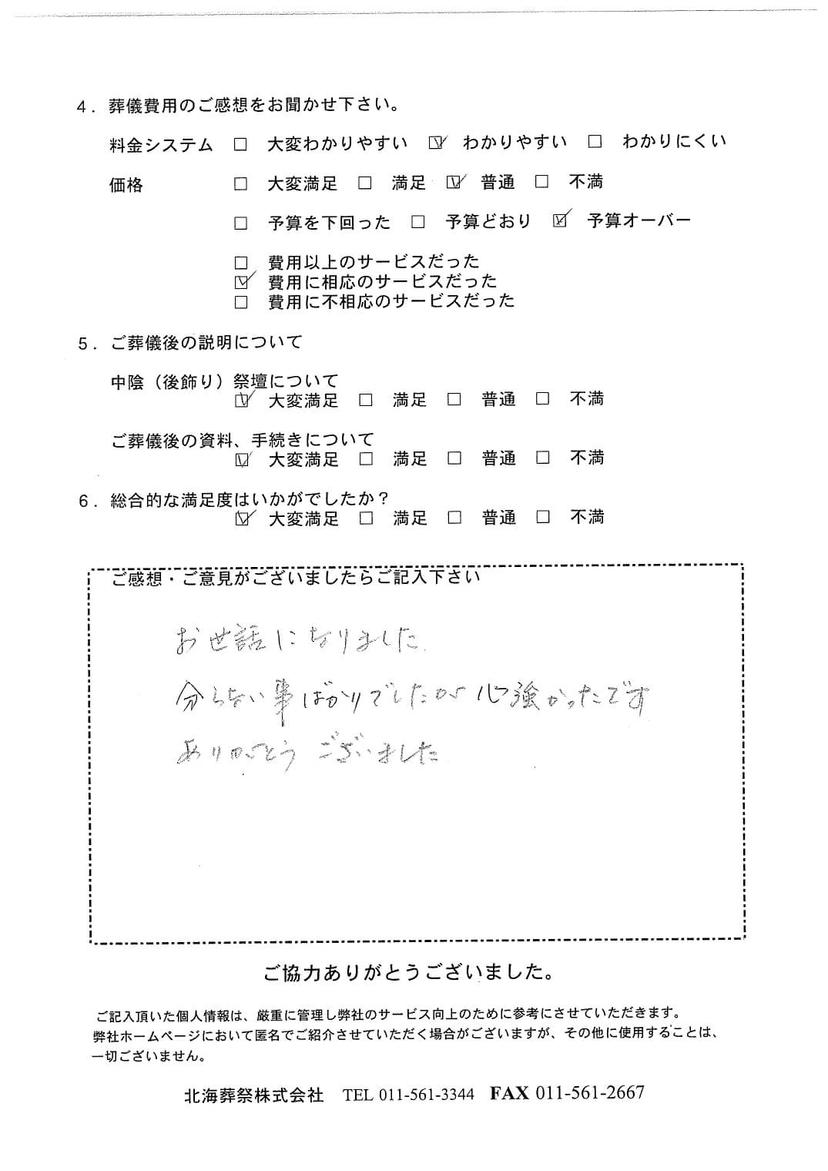 4．葬儀費用のご感想をお聞かせ下さい。
料金システム □ 大変わかりやすい ☑ わかりやすい □ わかりにくい
価格 □ 大変満足 □ 満足 ☑ 普通 □ 不満
□ 予算を下回った □ 予算どおり ☑ 予算オーバー
□ 費用以上のサービスだった
☑ 費用に相応のサービスだった
□ 費用に不相応のサービスだった
5．ご葬儀後の説明について
中陰（後飾り）祭壇について
☑ 大変満足 □ 満足 □ 普通 □ 不満
ご葬儀後の資料、手続きについて
☑ 大変満足 □ 満足 □ 普通 □ 不満
6．総合的な満足度はいかがでしたか？
☑ 大変満足 □ 満足 □ 普通 □ 不満
ご感想・ご意見がございましたらご記入下さい
お世話になりました
分らない事ばかりでしたが心強かったです
ありがとうございました
ご協力ありがとうございました。
ご記入頂いた個人情報は、厳重に管理し弊社のサービス向上のために参考にさせていただきます。
弊社ホームページにおいて匿名でご紹介させていただく場合がございますが、その他に使用することは、
一切ございません。
北海葬祭株式会社 TEL 011-561-3344 FAX 011-561-2667